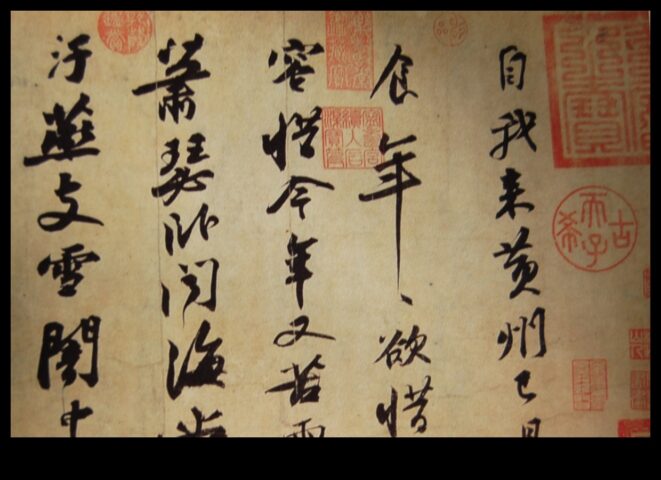 自我来黃州已
食年、欲惜
容惜今年又苦雨
蕭瑟卧聞海
汙燕支雪闇中
古希天子